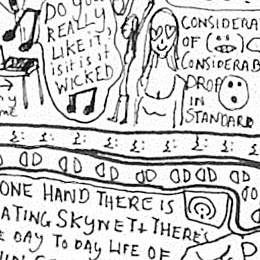 DO YOU
REALLY
LIKE IT,
is it is it
WICKED
CONSIDERA
OF
CONSIDERAB
DROP
IN
STANDARD
ONE HAND THERE IS
ATING SKYNET + THERE'S
DAY TO DAY LIFE OF